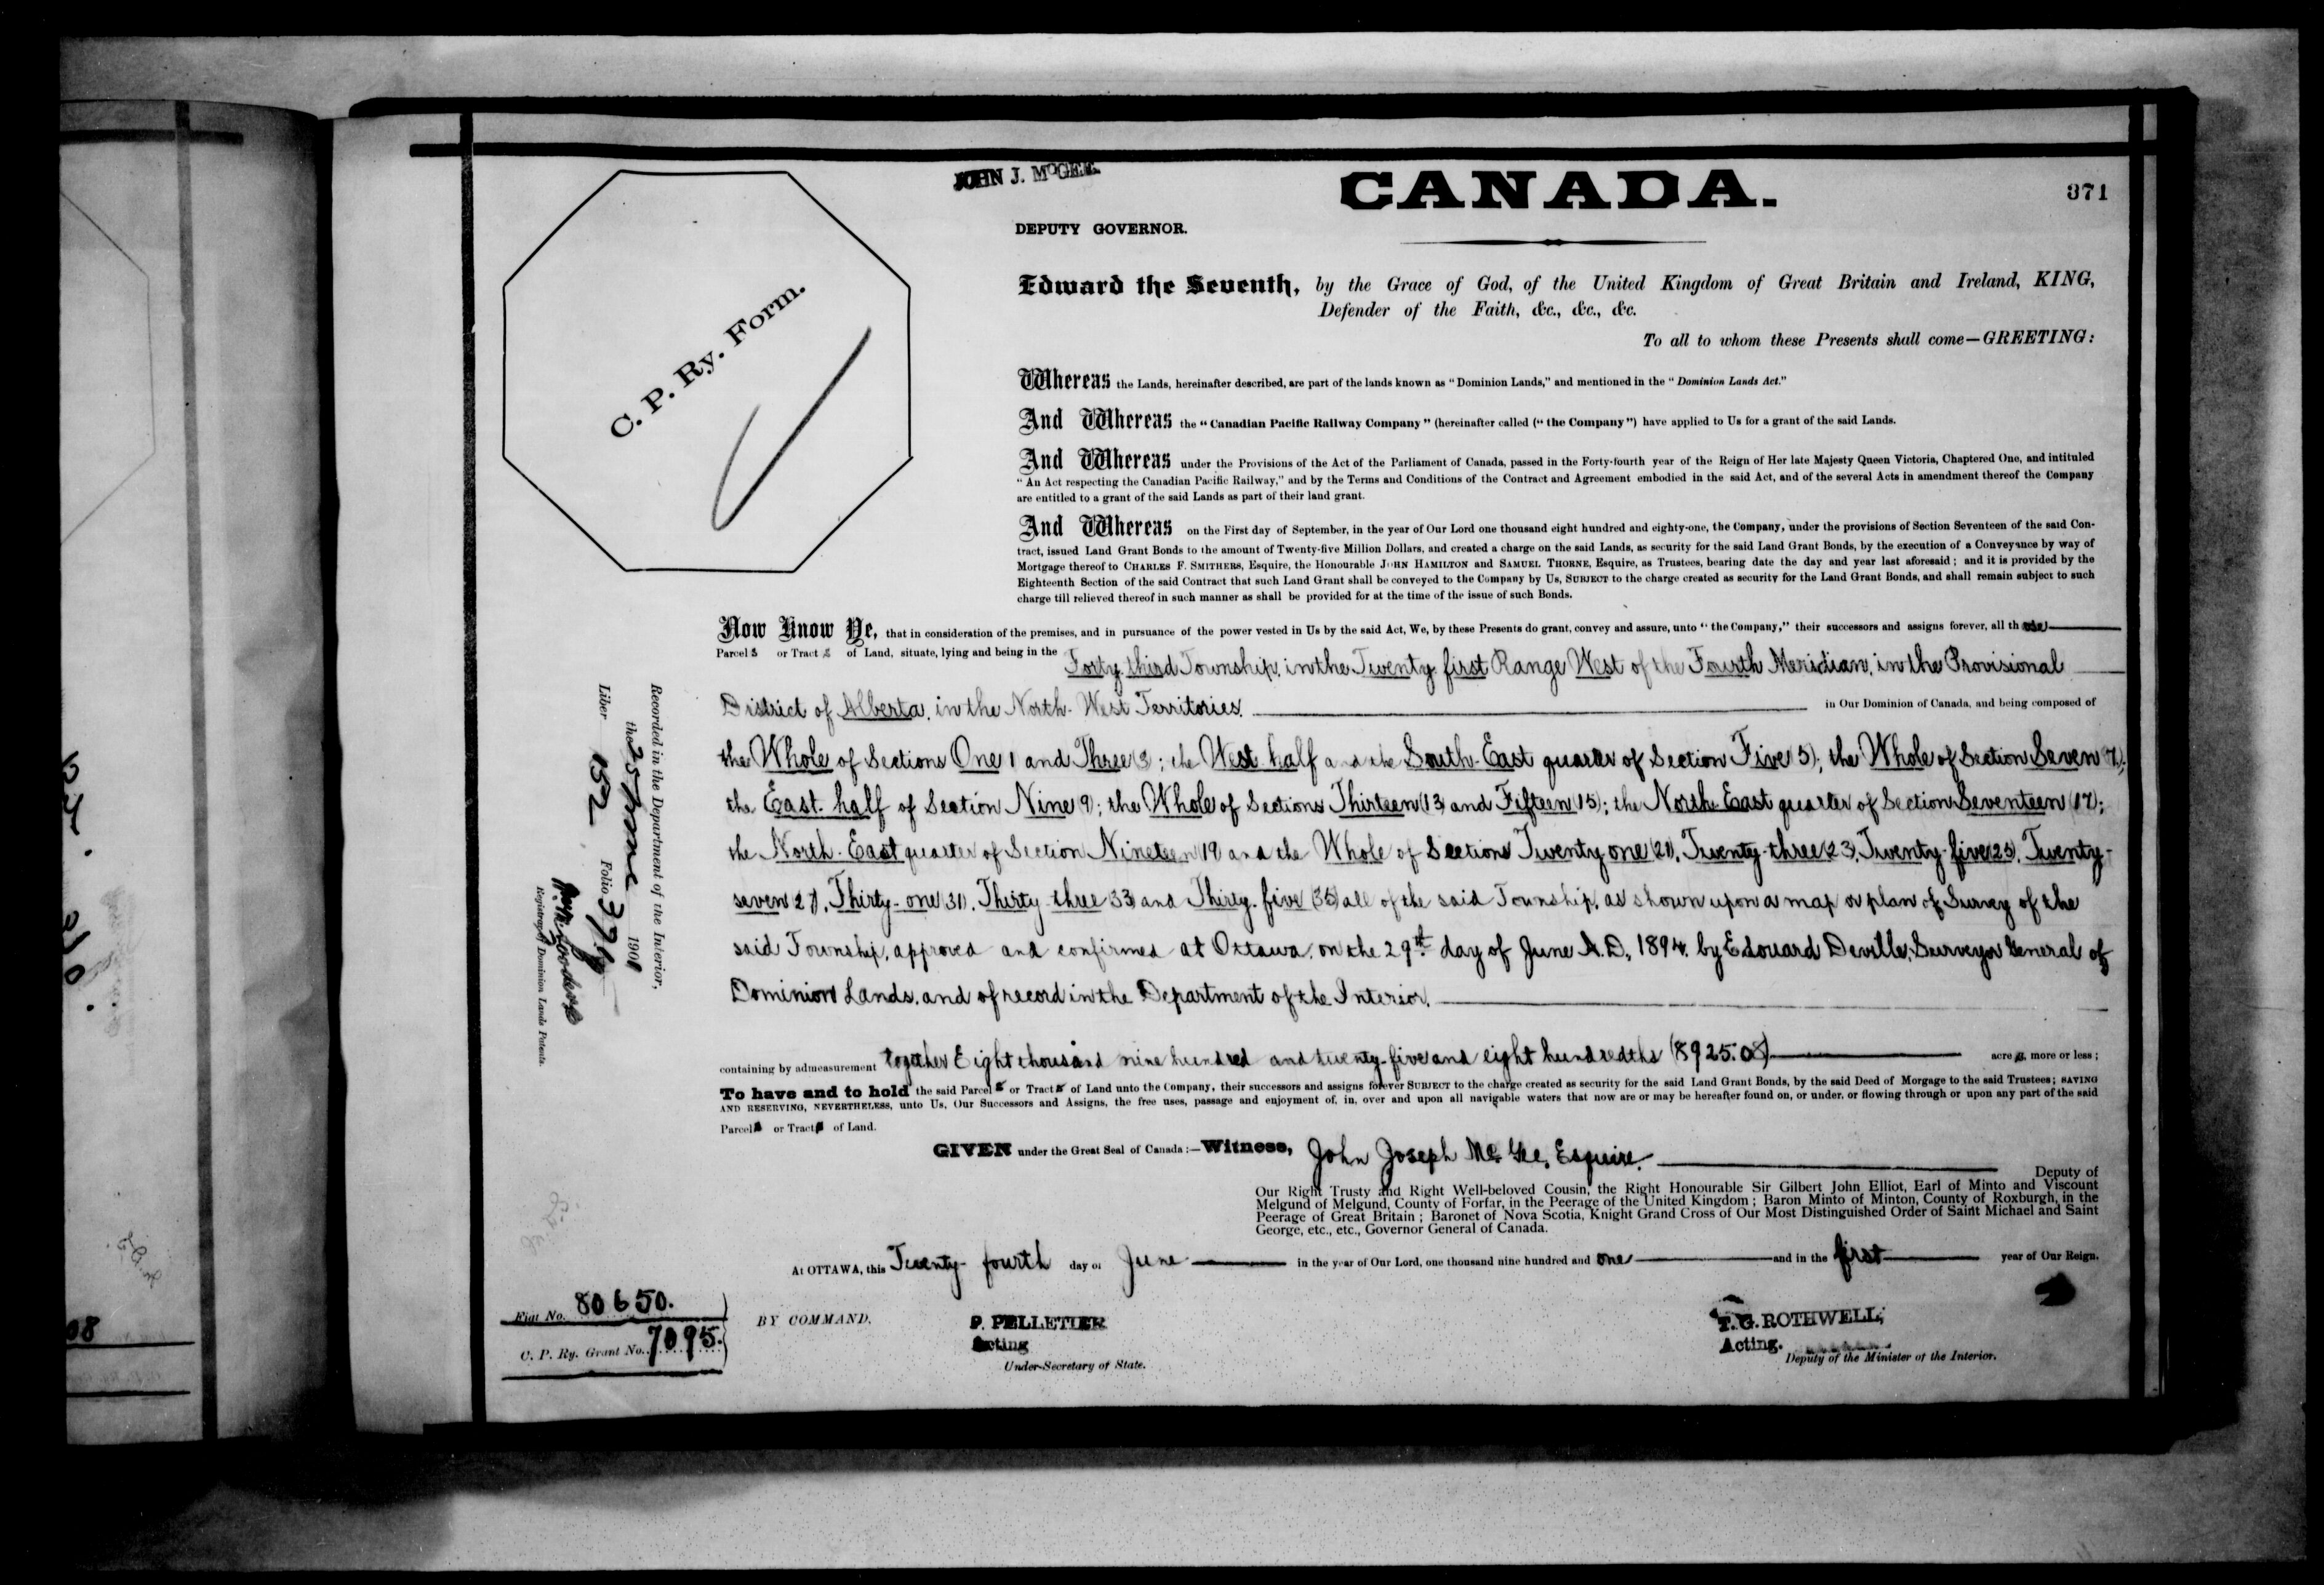 JOHN J. McGEE.
CANADA.
371
DEPUTY GOVERNOR.
C. P. Ry. Form.
Edward the Seventh, by the Grace of God, of the United Kingdom of Great Britain and Ireland, KING,
Defender of the Faith, &c., &c., &c.
To all to whom these Presents shall come—GREETING:
Whereas the Lands, hereinafter described, are part of the lands known as "Dominion Lands," and mentioned in the "Dominion Lands Act."
And Whereas the "Canadian Pacific Railway Company" (hereinafter called ("the Company") have applied to Us for a grant of the said Lands.
And Whereas under the Provisions of the Act of the Parliament of Canada, passed in the Forty-fourth year of the Reign of Her late Majesty Queen Victoria, Chaptered One, and intituled
"An Act respecting the Canadian Pacific Railway," and by the Terms and Conditions of the Contract and Agreement embodied in the said Act, and of the several Acts in amendment thereof the Company
are entitled to a grant of the said Lands as part of their land grant.
And Whereas on the First day of September, in the year of Our Lord one thousand eight hundred and eighty-one, the Company, under the provisions of Section Seventeen of the said Con-
tract, issued Land Grant Bonds to the amount of Twenty-five Million Dollars, and created a charge on the said Lands, as security for the said Land Grant Bonds, by the execution of a Conveyance by way of
Mortgage thereof to CHARLES F. SMITHERS, Esquire, the Honourable JOHN HAMILTON and SAMUEL THORNE, Esquire, as Trustees, bearing date the day and year last aforesaid; and it is provided by the
Eighteenth Section of the said Contract that such Land Grant shall be conveyed to the Company by Us, SUBJECT to the charge created as security for the Land Grant Bonds, and shall remain subject to such
charge till relieved thereof in such manner as shall be provided for at the time of the issue of such Bonds.
Now Know Ye, that in consideration of the premises, and in pursuance of the power vested in Us by the said Act, We, by these Presents do grant, convey and assure, unto "the Company," their successors and assigns forever, all those
Parcels or Tracts of Land, situate, lying and being in the Forty third Township, in the Twenty first Range West of the Fourth Meridian, in the Provisional
District of Alberta, in the North-West Territories, in Our Dominion of Canada, and being composed of
the Whole of Sections One 1 and Three (3; the West half and the South-East quarter of Section Five 5); the Whole of Section Seven (7);
the East half of Section Nine 9); the Whole of Sections Thirteen (13) and Fifteen (15); the North-East quarter of Section Seventeen (17);
the North-East quarter of Section Nineteen (19) and the Whole of Sections Twenty one (21), Twenty-three (23), Twenty-five (25), Twenty-
seven 27), Thirty-one (31), Thirty three (33) and Thirty-five (35) all of the said Township, as shown upon a map or plan of Survey of the
said Township, approved and confirmed at Ottawa, on the 29th day of June A.D., 1894, by Edouard Deville, Surveyor General of
Dominion Lands, and of record in the Department of the Interior.
containing by admeasurement together Eight thousand nine hundred and twenty-five and eight hundredths (8925.08) acres, more or less;
To have and to hold the said Parcels or Tracts of Land unto the Company, their successors and assigns forever SUBJECT to the charge created as security for the said Land Grant Bonds, by the said Deed of Morgage to the said Trustees; SAVING
AND RESERVING, NEVERTHELESS, unto Us, Our Successors and Assigns, the free uses, passage and enjoyment of, in, over and upon all navigable waters that now are or may be hereafter found on, or under, or flowing through or upon any part of the said
Parcels or Tracts of Land.
GIVEN under the Great Seal of Canada:—Witness, John Joseph McGee, Esquire,
Deputy of
Our Right Trusty and Right Well-beloved Cousin, the Right Honourable Sir Gilbert John Elliot, Earl of Minto and Viscount
Melgund of Melgund, County of Forfar, in the Peerage of the United Kingdom; Baron Minto of Minton, County of Roxburgh, in the
Peerage of Great Britain; Baronet of Nova Scotia, Knight Grand Cross of Our Most Distinguished Order of Saint Michael and Saint
George, etc., etc., Governor General of Canada.
At OTTAWA, this Twenty-fourth day of June in the year of Our Lord, one thousand nine hundred and one and in the first year of Our Reign.
BY COMMAND.
P. PELLETIER
Acting
Under-Secretary of State.
T. G. ROTHWELL,
Acting.
Deputy of the Minister of the Interior.
Fiat No. 80650.
C. P. Ry. Grant No. 7095.
Recorded in the Department of the Interior,
the 25 June 1901
Liber 152 Folio 371
Registrar of Dominion Lands Patents.